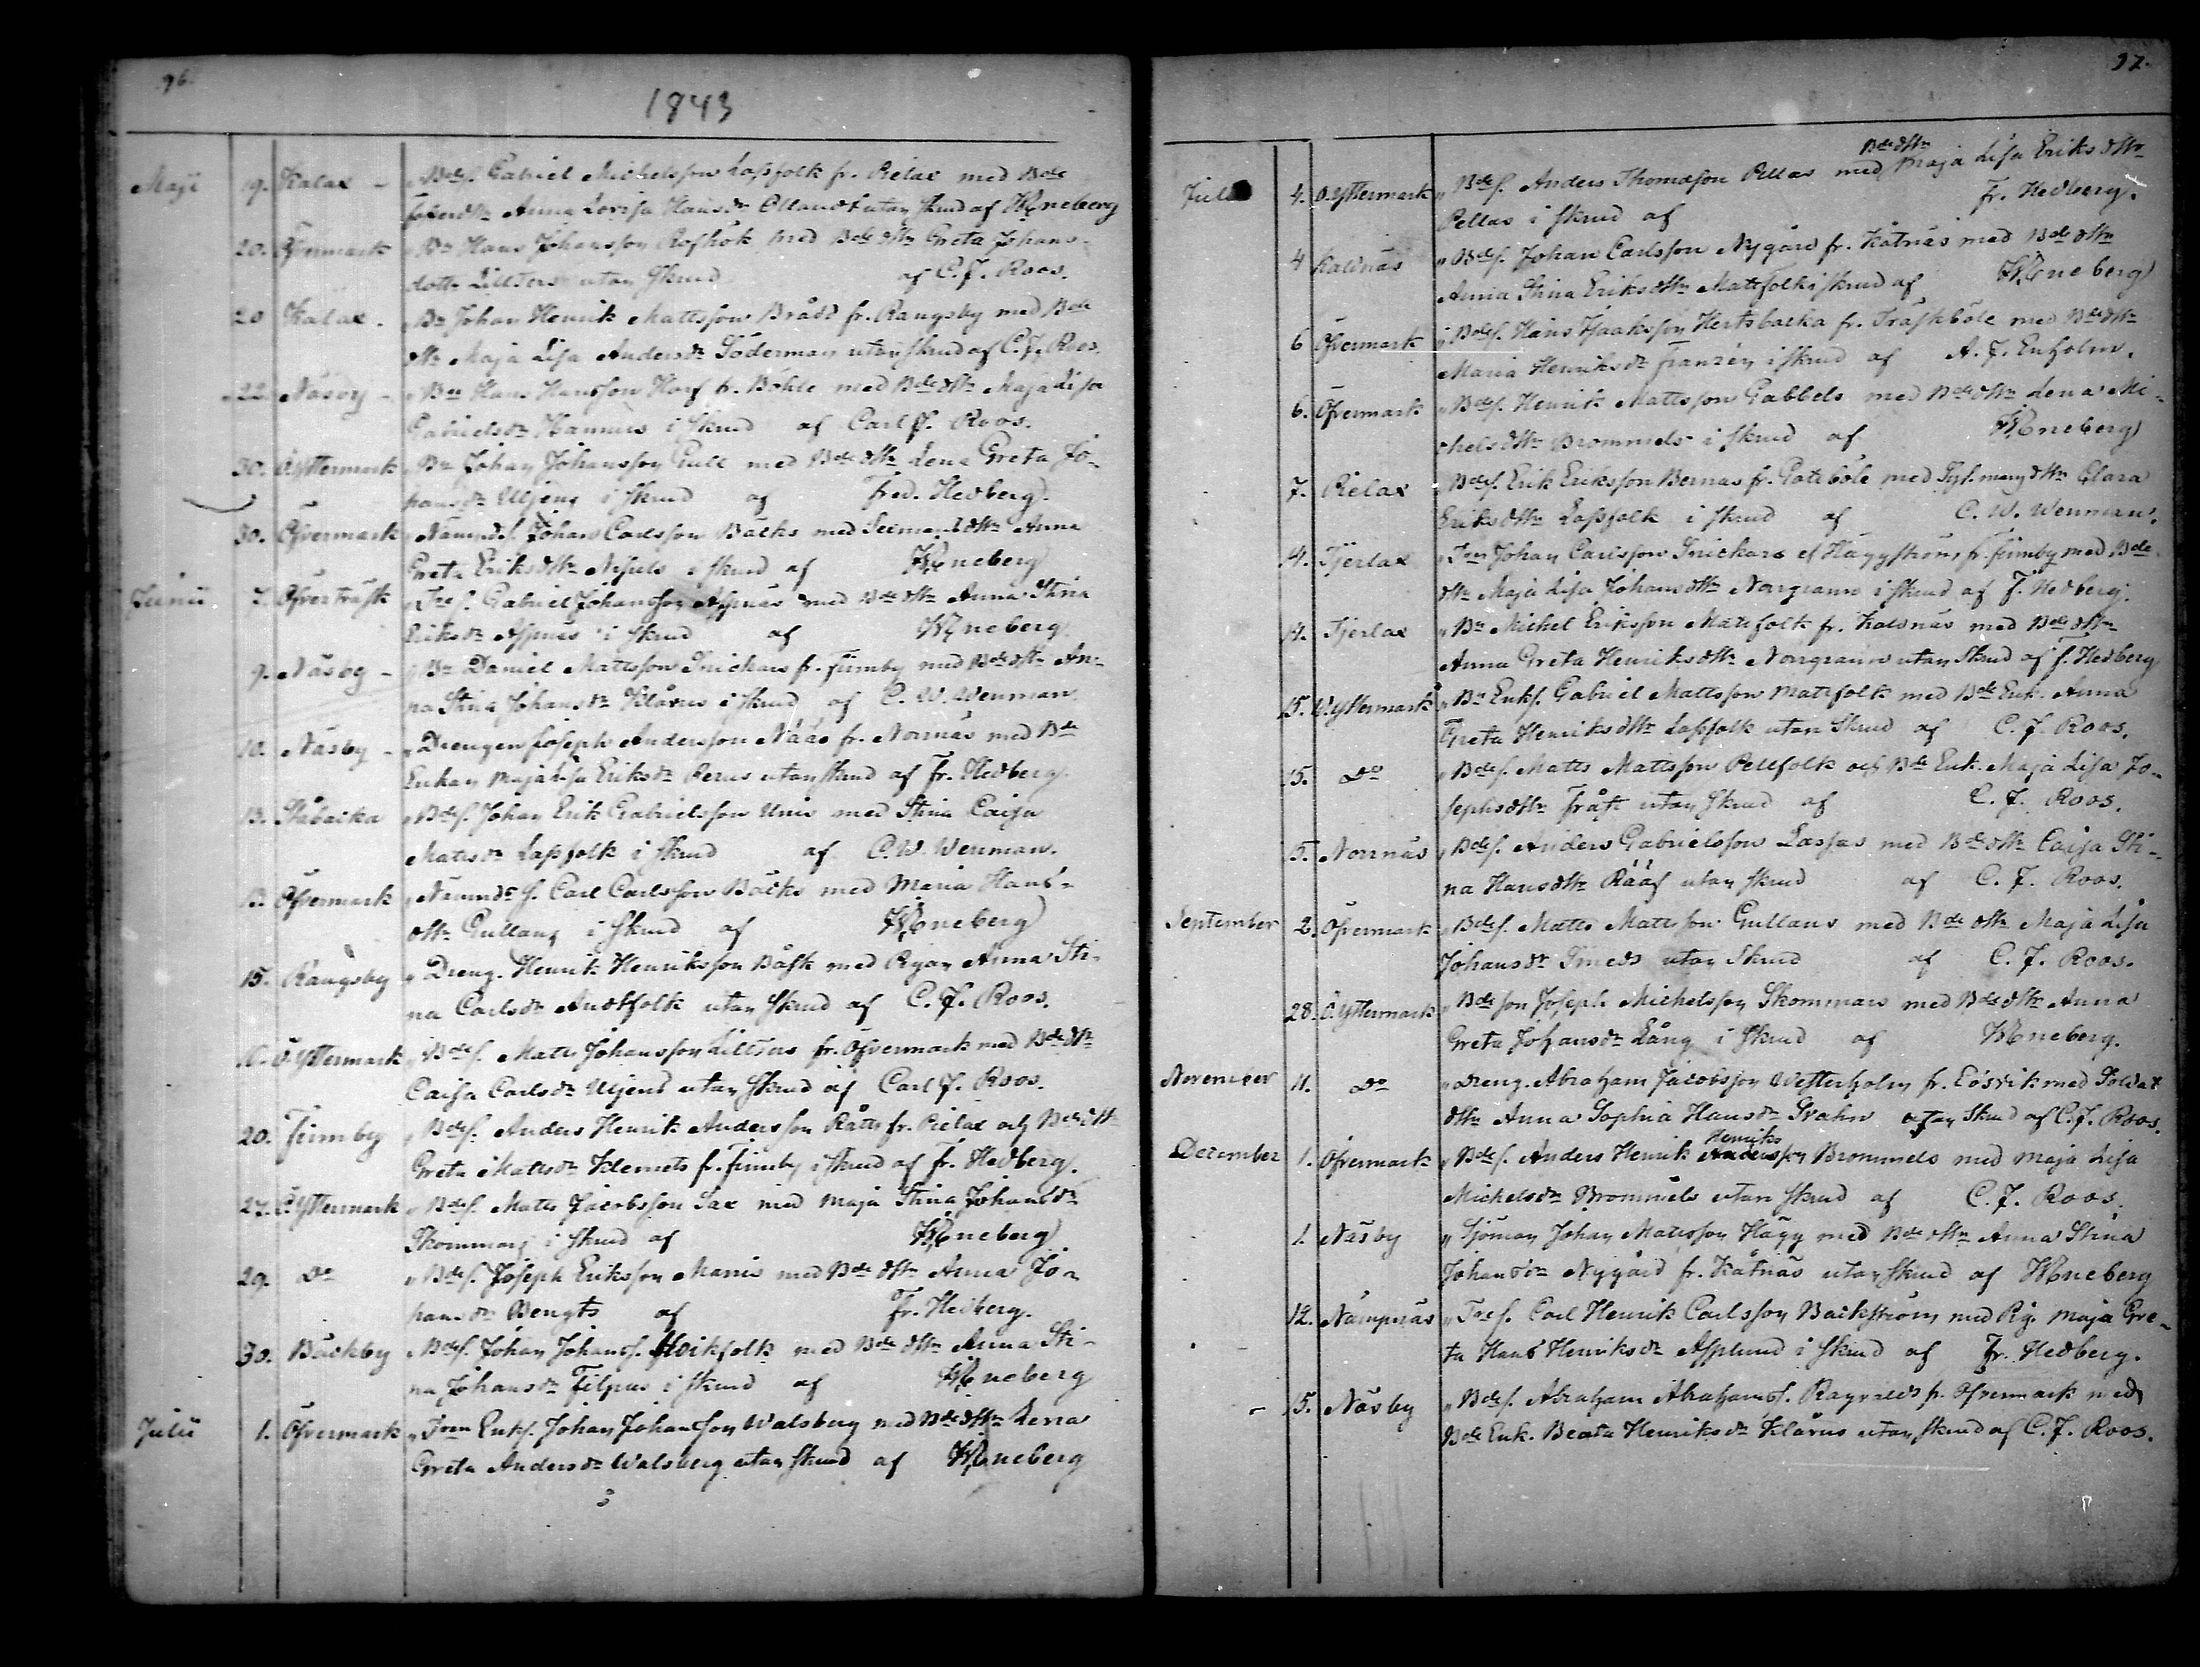 96.
1843
Maji 19. Kalax - „Bdes. Gabriel Michelsson Lassfolk fr. Rielax med Bde
Anna Lovisa Hansdr utan skrud af Weneberg
20. Öfvermark „Bn Hans Johansson Rofhök med Bde dttr Greta Johans-
dottr Lilltors utan Skrud af C. J. Roos.
20 Kalax. „Bn Johan Henrik Mattsson Brådd fr. Rangsby med Bde
dttr Maja Lisa Andersdr Söderman utan skrud af C. J. Roos.
22. Näsby - „Bn Hans Hansson Harf fr. Böhle med Bde dttr Maja Lisa
Gabrielsdr Hannus i skrud af Carl J. Roos.
30. Ö.Yttermark „Bn Johan Johansson Gull med Bde dttr Lena Greta Jo-
hansdr Uljens i Skrud af Fred. Hedberg.
30. Öfvermark „Nämnd.s. Johan Carlsson Bäcks med dttr Anna
Greta Eriksdttr Nisuls i skrud af Weneberg
Junii 7. Öfverträsk „Tres. Gabriel Johansson Aspnäs med Bde dttr Anna Stina
Eriksdr Aspnäs i skrud af Weneberg.
9. Näsby - „Bn Daniel Mattsson Snickars fr. Finnby med Bde dttr An-
na Stina Johansdr Klårus i skrud af C. W. Wenman
10. Näsby - „Drengen Joseph Andersson Nääs fr. Norrnäs med Bde
Enkan Maja Lisa Eriksdr Perus utan skrud af Fr. Hedberg.
13. Påbacka „Bdes. Johan Erik Gabrielsson Unis med Stina Caisa
Mattsdr Lassfolk i skrud af C. W. Wenman.
13. Öfvermark „Nämndr s. Carl Carlsson Bäcks med Maria Hans-
dttr Gullans i skrud af Weneberg
15. Rangsby „Dreng. Henrik Henriksson Båsk med Pigan Anna Sti-
na Carlsdr Andtfolk utan Skrud af C. J. Roos.
Ö.Yttermark „Bdes. Matts Johansson Lilltors fr. Öfvermark med Bde dttr
Caisa Carlsdr Uljens utan skrud af Carl J. Roos.
20. Finnby „Bdes. Anders Henrik Andersson Rått fr. Rielax och Bde dttr
Greta Mattsdr Klemets fr. Finnby i skrud af Fr. Hedberg.
27. Ö.Yttermark „Bdes. Matts Jacobsson Sax med Maja Stina Johansdr
Skommars i skrud af Weneberg
29. Do „Bdes. Joseph Eriksson Manns med Bde dttr Anna Jo-
hansdr Bengts af Fr. Hedberg.
30. Bäckby Bdes. Johan Johanss. Storkfolk med Bde dttr Anna Sti-
na Johansdr Filpus i skrud af Weneberg
Julii 1. Öfvermark „Tren Enkl. Johan Johansson Walsberg med Bde dttr Lena
Greta Andersdr Walsberg utan skrud af Weneberg
97.
Julii 4. Ö.Yttermark „Bdes. Anders Thomasson Pellas med Bde dttr Maja Lisa Eriks dttr
Pellas i skrud af Fr. Hedberg.
4 Kaldnäs „Bdes. Johan Carlsson Nygård fr. Kåtnäs med Bde dttr
Anna Stina Eriksdttr Mattfolk i skrud af Weneberg
6 Öfvermark „Bdes. Hans Isaaksson Hertsbacka fr. Träskböle med Bde dttr
Maria Henriksdr Franzén i skrud af A. J. Enholm.
6. Öfvermark „Bdes. Henrik Mattsson Gabbels med Bde dttr Lena Mi-
chelsdttr Brommels i skrud af Weneberg
7. Rielax „Bdes. Erik Eriksson Bernas fr. Gottböle med dttr Clara
Eriksdttr Lassfolk i skrud af C. W. Wenman.
14. Tjerlax „Tren Johan Carlsson Snickars el Häggström fr. Finnby med Bde
dttr Maja Lisa Johansdttr Norrgrann i skrud af F. Hedberg.
14. Tjerlax „Bn Michel Eriksson Mattfolk fr. Kaldnäs med Bde dttr
Anna Greta Henriksdttr Norrgrann utan skrud af F. Hedberg
15. Ö.Yttermark „Bn Enkl. Gabriel Mattsson Mattfolk med Bde Enk. Anna
Greta Henriksdttr Lassfolk utan Skrud af C. J. Roos.
15. Do „Bdes. Matts Mattsson Pellfolk och Bde Enk. Maja Lisa Jo-
sephsdttr Trått utan skrud af C. J. Roos.
15. Norrnäs „Bdes. Anders Gabrielsson Lassas med Bde dttr Caisa Sti-
na Hansdttr Rääf utan skrud af C. J. Roos.
September 2. Öfvermark „Bdes. Matts Mattsson Gullans med Bde dttr Maja Lisa
Johansdr Smeds utan skrud af C. J. Roos.
28. Ö.Yttermark „Bde son Joseph Michelsson Skommars med Bde dttr Anna
Greta Johansdr Lång i skrud af Weneberg.
November 11. Do „Dreng. Abraham Jacobsson Westerholm fr. Edsvik med Soldat
dttr Anna Sophia Hansdr Svahn utan Skrud af C. J. Roos.
Henriks
December 1. Öfvermark „Bdes. Anders Henrik Andersson Brommels med Maja Lisa
Michelsdr Brommels utan skrud af C. J. Roos.
1. Näsby „Sjöman Johan Mattsson Hägg med Bde dttr Anna Stina
Johansdr Nygård fr. Kåtnäs utan skrud af Weneberg
12. Nämpnäs „Tres. Carl Henrik Carlsson Backström med Pig. Maja Gre-
ta Hans Henriksdr Asplund i skrud af Fr. Hedberg.
15. Näsby „Bdes. Abraham Abrahams. Ragvalds fr. Öfvermark med
Bde Enk. Beata Henriksdr Klårus utan skrud af C. J. Roos.